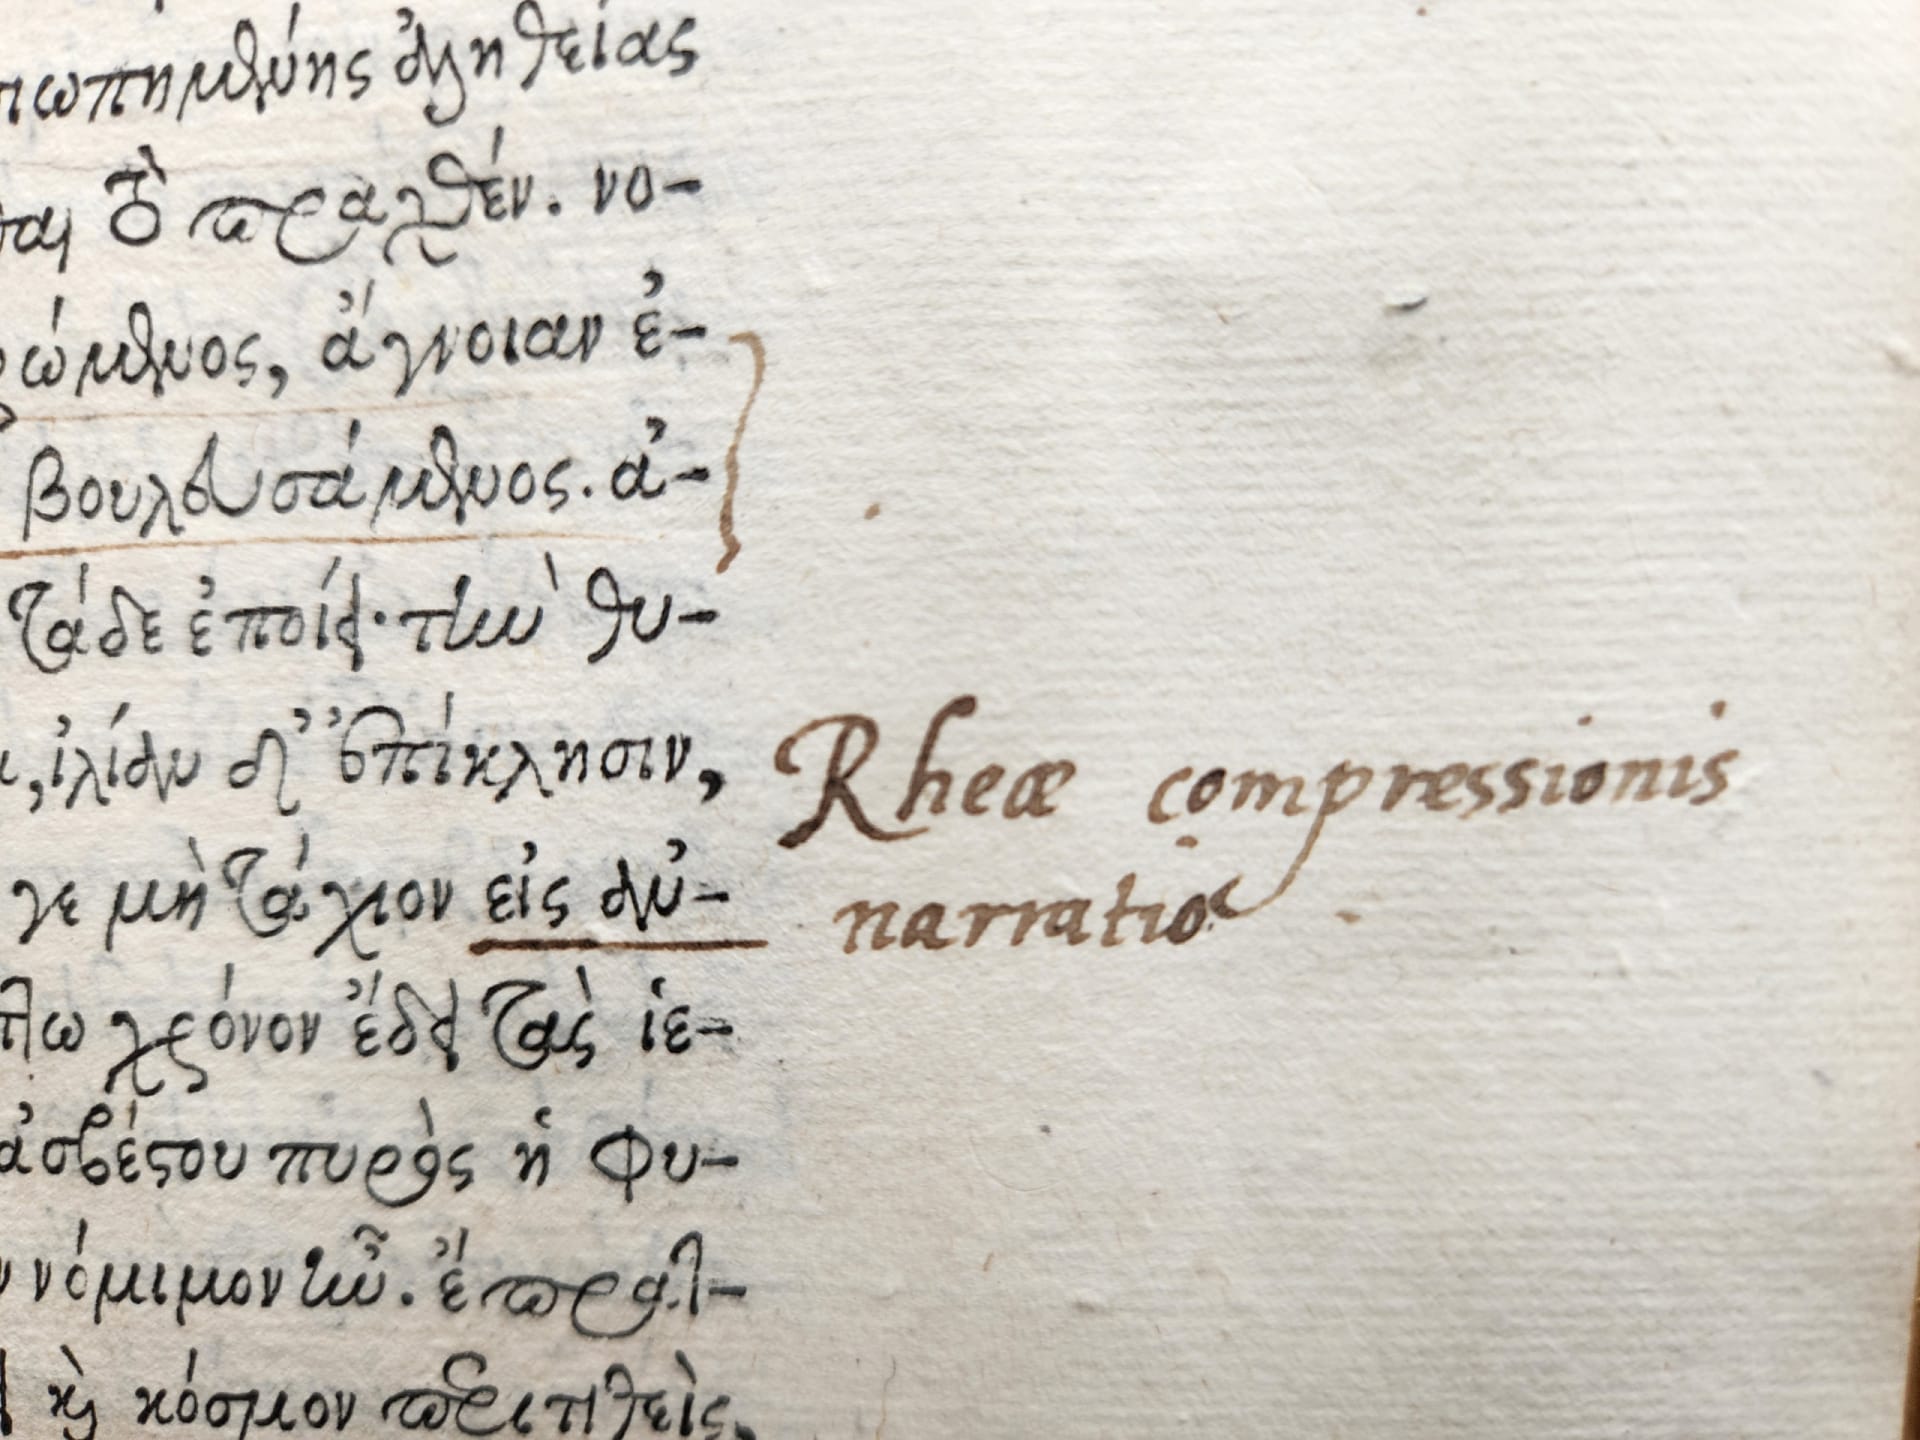 σιωπημένης ἀληθείας
ται τὸ πραχθέν. νο-
ώμενος, ἄγνοιαν ἐ-
βουλευσάμενος. ἀ-
τάδε ἐποίει· τὴν θυ-
ἰλίαν δ' ἐπίκλησιν, Rheæ compressionis
γε μὴ τάχιον εἰς αὐ- narratio
χρόνον ἔδει τὰς ἱε-
ἀσβέστου πυρὸς ἡ φυ-
νόμιμον ἦν. ἔπρατ-
καὶ κόσμον περιτιθεὶς,